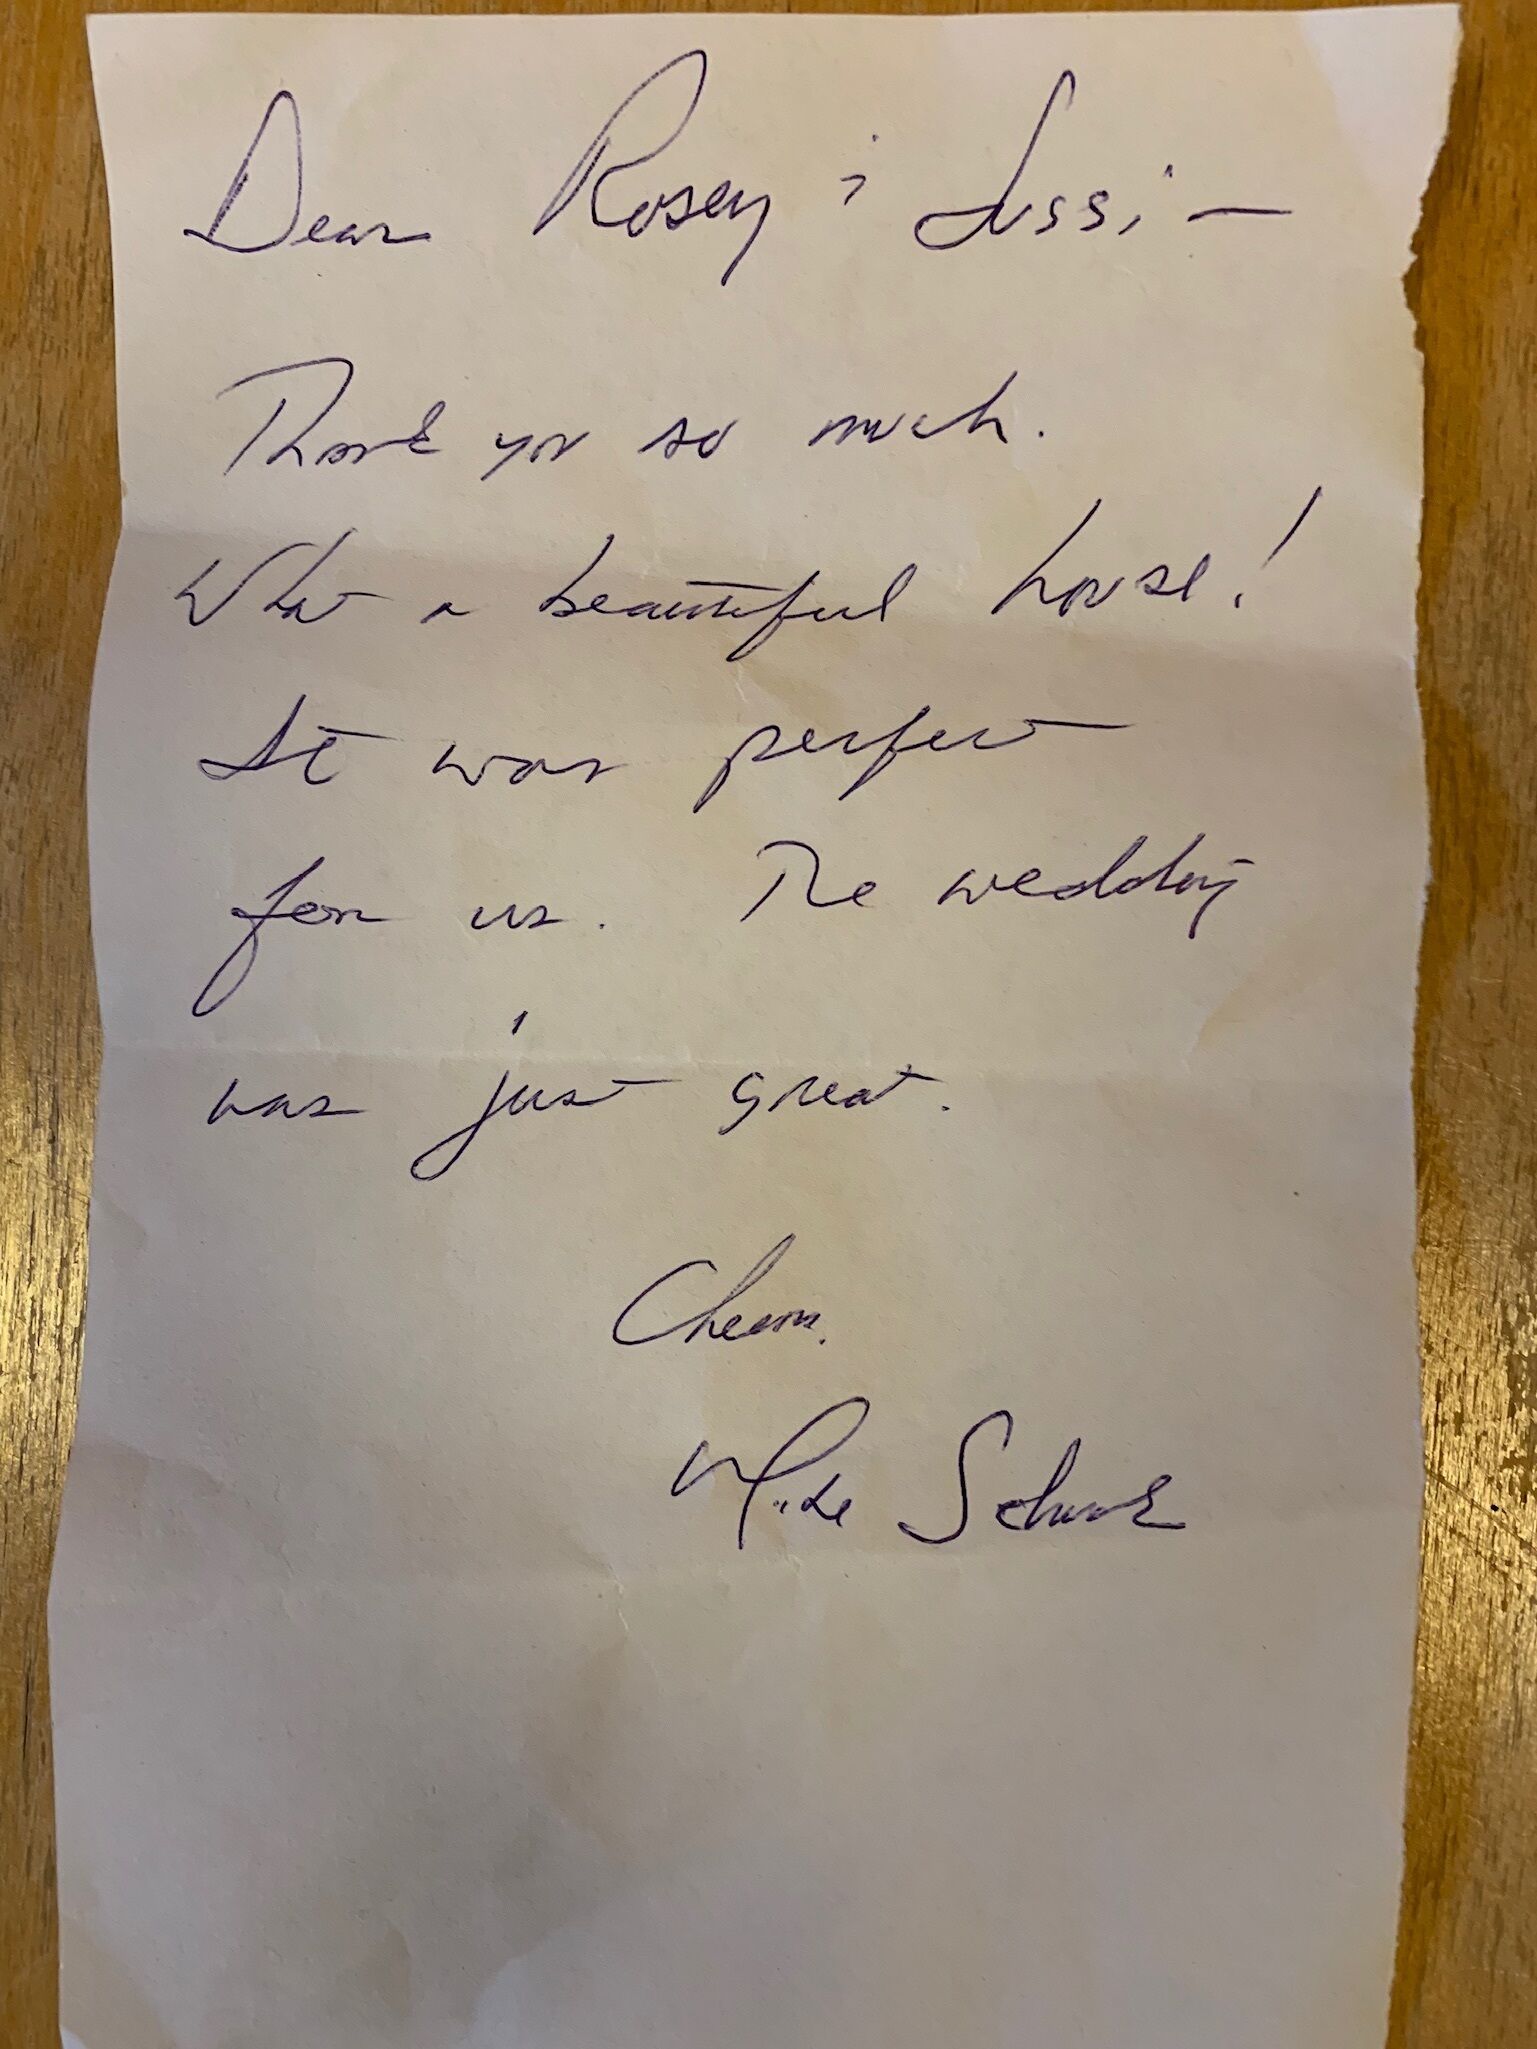 Dear Rosey & Jussi —
Thank you so much.
What a beautiful house!
It was perfect
for us. The wedding
was just great.
Cheers.
Mike